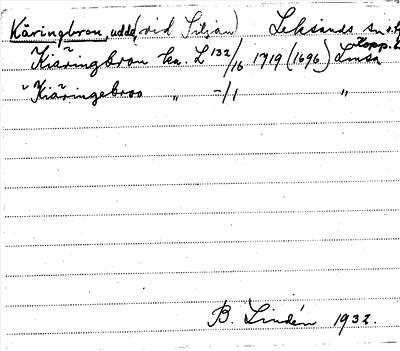 Käringbron, udde (vid Siljan) Leksands sn o. h.
Kopp. l.
Kiäringbron ka. L 132/16 1719 (1696) Lmsa
" Kiäringebroo " -/1 "
B. Lindén 1932.